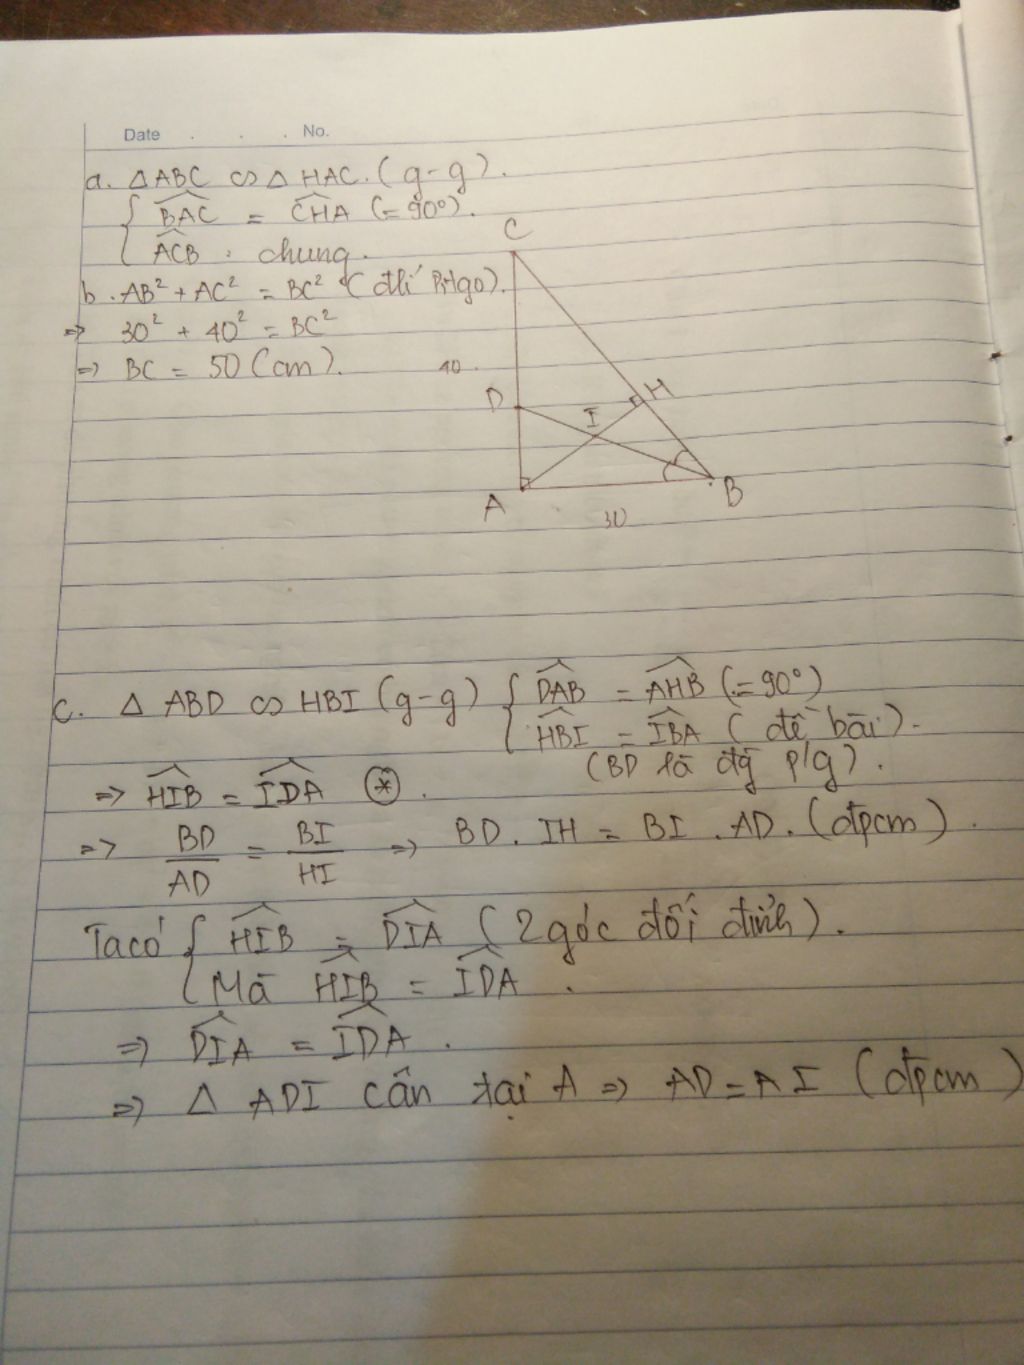 Date . . . No.
a. △ABC ∽ △ HAC. (g-g).
{ BAC = CHA (= 90°).
ACB : chung.
b. AB² + AC² = BC² (đlí Pitago).
=> 30² + 40² = BC²
=> BC = 50 (cm).
C
40
D
I
H
A
B
30
c. △ ABD ∽ HBI (g-g) { DAB = AHB (= 90°)
HBI = IBA (đề bài).
(BD là đg p/g).
=> HIB = IDA (*).
=> BD/AD = BI/HI => BD. IH = BI . AD. (đpcm).
Ta có { HIB = DIA (2 góc đối đỉnh).
Mà HIB = IDA .
=> DIA = IDA .
=> △ ADI cân tại A => AD = AI (đpcm)